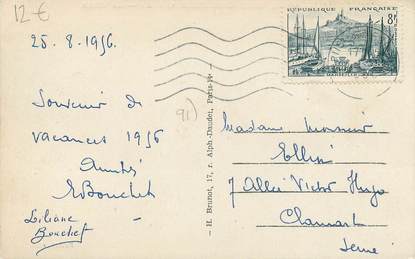 12 €
25-8-1956.
Souvenir de
vacances 1956
Amitiés
E Bouchet
Liliane
Bouchet
91)
— H. Brunot, 17, r. Alph-Daudet, Paris-14e —
REPUBLIQUE FRANÇAISE
8F
MARSEILLE
Madame Monsieur
7 Allée Victor Hugo
Clamart
Seine